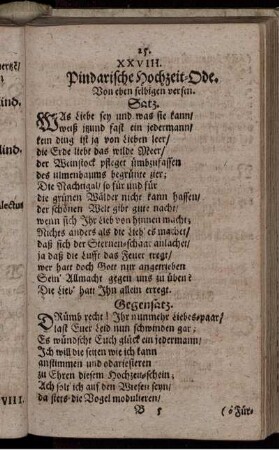 25.
XXVIII.
Pindarische Hochzeit-Ode.
Von eben selbigen versen.
Satz.
WAs Liebe sey und was sie kann/
weiß itzund fast ein jedermann/
kein ding ist ja von Lieben leer/
die Erde liebt das wilde Meer/
der Weinstock pfleget ümbzufassen
des ulmenbaums begrünte zier;
Die Nachtigal/ so für und für
die grünen Wälder nicht kann hassen/
der schönen Welt gibt gute nacht/
wenn sich Ihr Lieb von hinnen macht;
Nichts anders als die Lieb es machet/
daß sich der Sternen-schaar anlachet/
ja daß die Lufft das Feuer regt/
wer hatt doch Gott nur angetrieben
Sein' Allmacht gegen uns zu üben?
Die Lieb' hatt Ihn allein erregt.
Gegensatz.
DRümb recht! Ihr nunmehr Liebes-paar/
last Euer Leid nun schwinden gar;
Es wündscht Euch glück ein jedermann/
Ich will die seiten wie ich kann
anstimmen und
zu Ehren diesem Hochzeit-schein;
Ach solt ich auf den Wiesen seyn/
da stets die Vogel modulieren/
B 5
(o Für-
VIII.
lectus
lind.